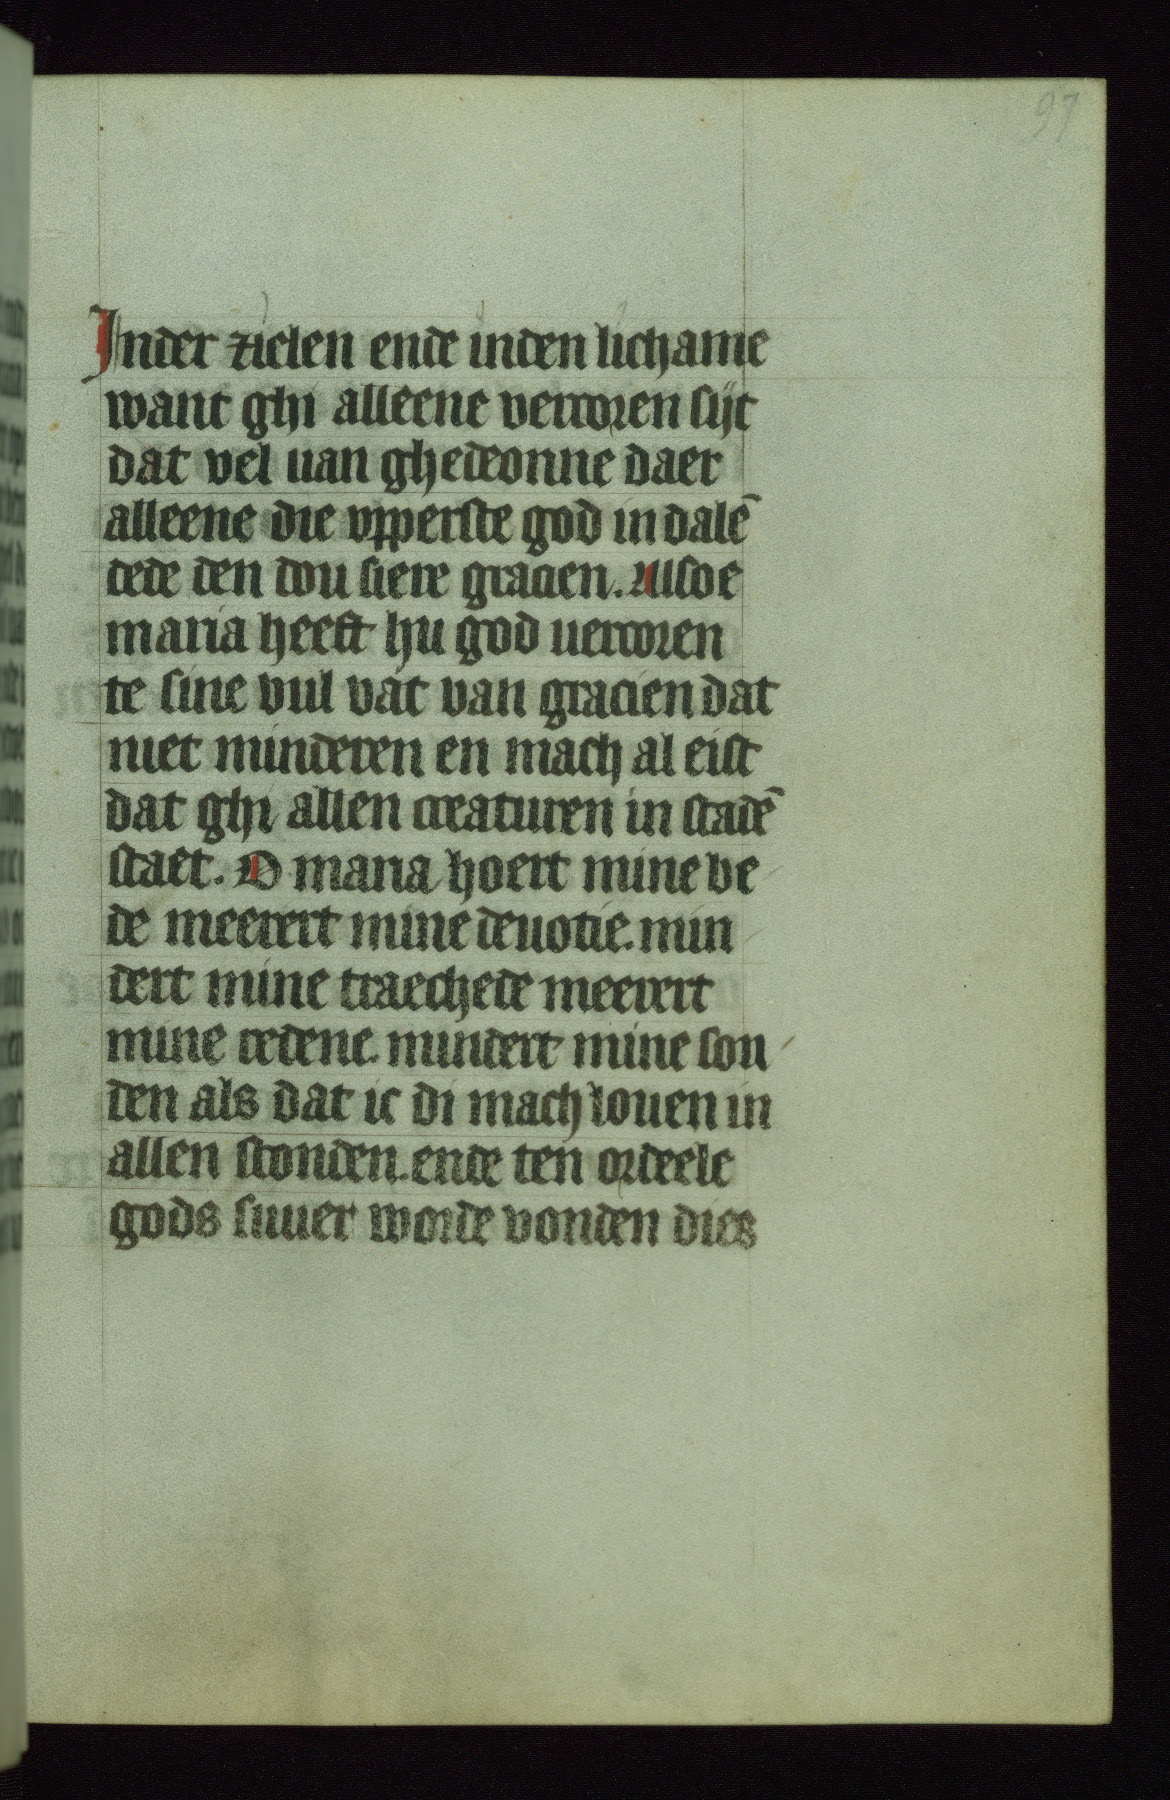 97
Inder zielen ende inden lichame
want ghi alleene vercoren sijt
dat vel uan ghedeonne daer
alleene die vpperste god in dalē
dede den dou siere gracien. Alsoe
maria heeft hu god uercoren
te sine vul vat van gracien dat
niet minderen en mach al eist
dat ghi allen creaturen in stadē
staet. O maria hoert mine be
de meerert mine deuotie. min
dert mine traechede meerert
mine redene. mindert mine son
den als dat ic di mach louen in
allen stonden. ende ten ordeele
gods suuer worde vonden dies